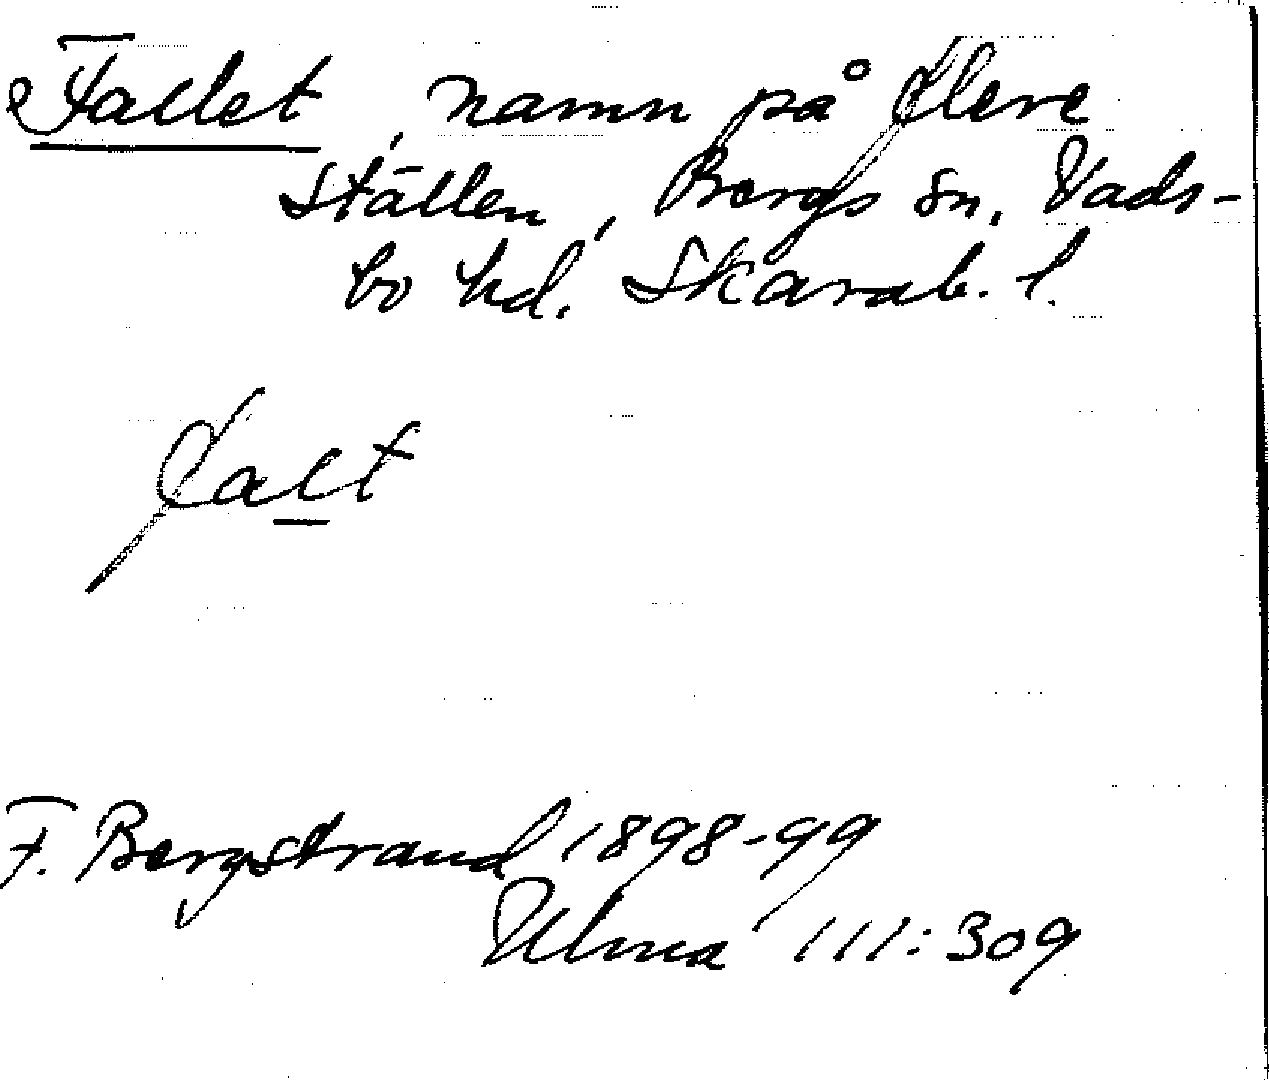 Fallet, namn på flere
ställen, Bergs sn. Vads-
bo hd. Skarab. l.
falt
F. Bergstrand 1898-99
Ulma 111:309